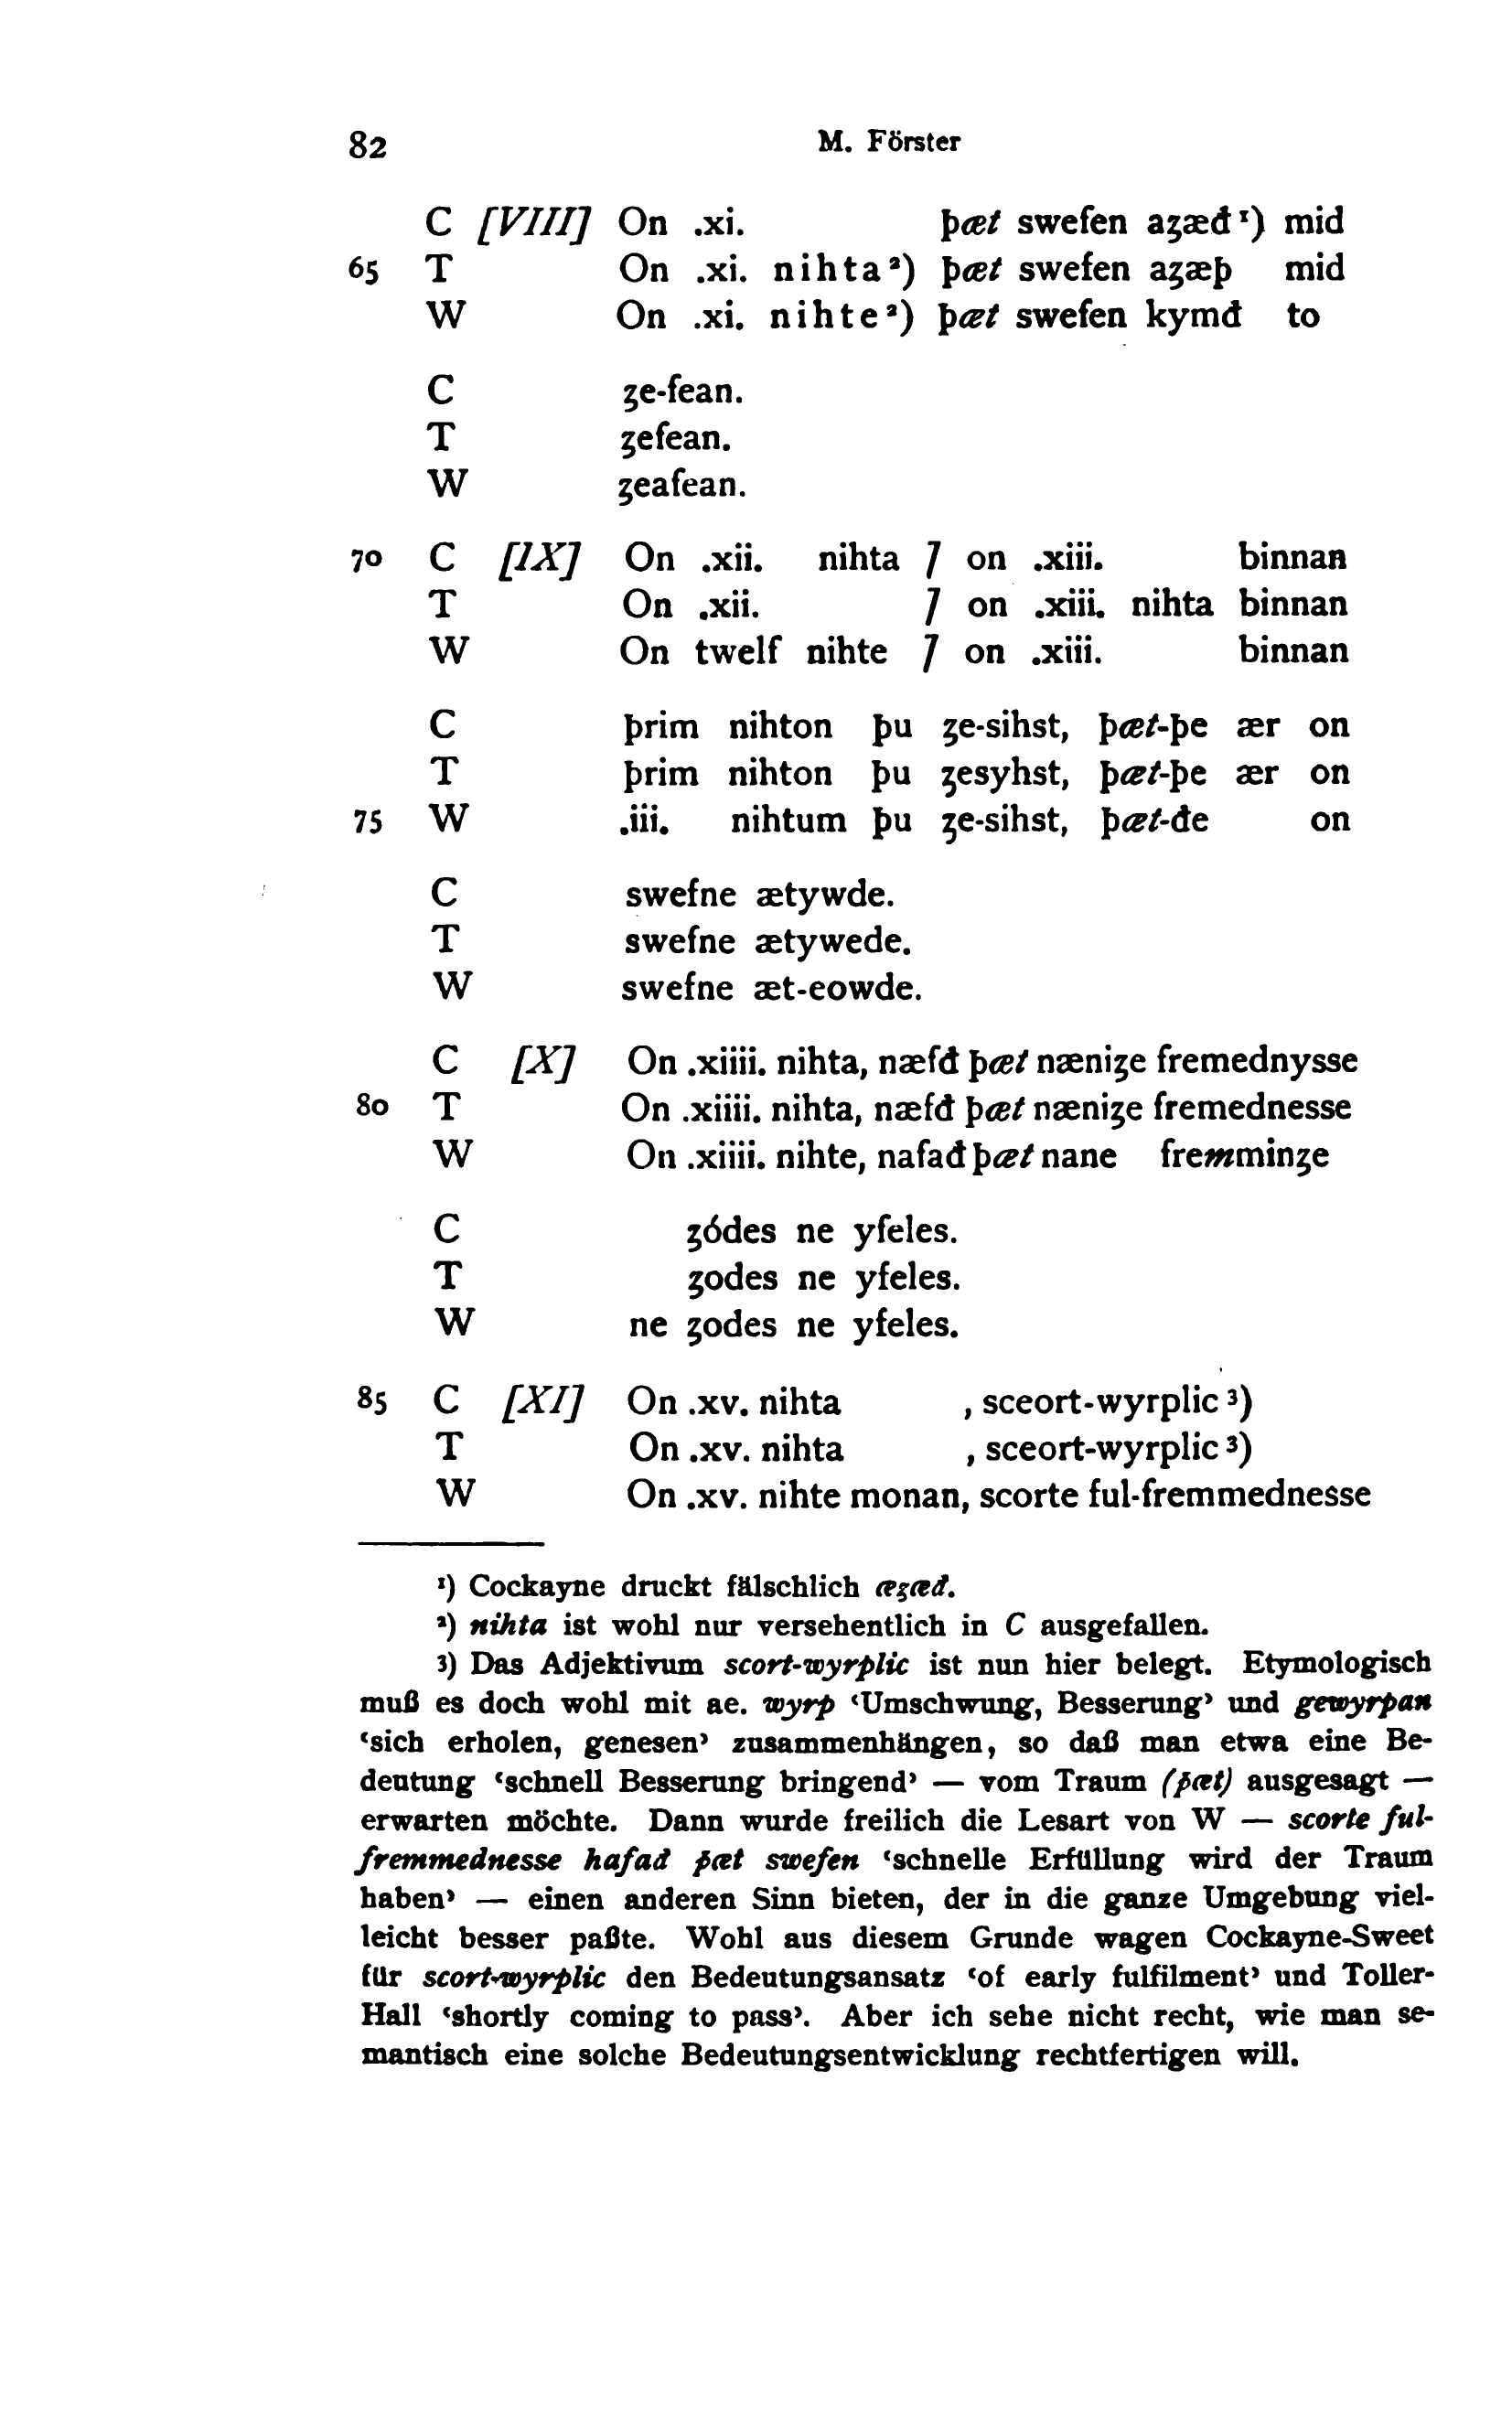 82 M. Förster
C [VIII] On .xi. þæt swefen aȝæđ ¹) mid
65 T On .xi. nihta ²) þæt swefen aȝæþ mid
W On .xi. nihte ²) þæt swefen kymđ to
C ȝe-fean.
T ȝefean.
W ȝeafean.
70 C [IX] On .xii. nihta ⁊ on .xiii. binnan
T On .xii. ⁊ on .xiii. nihta binnan
W On twelf nihte ⁊ on .xiii. binnan
C þrim nihton þu ȝe-sihst, þæt-þe ær on
T þrim nihton þu ȝesyhst, þæt-þe ær on
75 W .iii. nihtum þu ȝe-sihst, þæt-đe on
C swefne ætywde.
T swefne ætywede.
W swefne æt-eowde.
C [X] On .xiiii. nihta, næfđ þæt næniȝe fremednysse
80 T On .xiiii. nihta, næfđ þæt næniȝe fremednesse
W On .xiiii. nihte, nafađ þæt nane fremminȝe
C ȝódes ne yfeles.
T ȝodes ne yfeles.
W ne ȝodes ne yfeles.
85 C [XI] On .xv. nihta , sceort-wyrplic ³)
T On .xv. nihta , sceort-wyrplic ³)
W On .xv. nihte monan, scorte ful-fremmednesse
¹) Cockayne druckt fälschlich æȝæđ.
²) nihta ist wohl nur versehentlich in C ausgefallen.
³) Das Adjektivum scort-wyrplic ist nun hier belegt. Etymologisch
muß es doch wohl mit ae. wyrp ‘Umschwung, Besserung’ und gewyrpan
‘sich erholen, genesen’ zusammenhängen, so daß man etwa eine Be-
deutung ‘schnell Besserung bringend’ — vom Traum (þæt) ausgesagt —
erwarten möchte. Dann wurde freilich die Lesart von W — scorte ful-
fremmednesse hafađ þæt swefen ‘schnelle Erfüllung wird der Traum
haben’ — einen anderen Sinn bieten, der in die ganze Umgebung viel-
leicht besser paßte. Wohl aus diesem Grunde wagen Cockayne-Sweet
für scort-wyrplic den Bedeutungsansatz ‘of early fulfilment’ und Toller-
Hall ‘shortly coming to pass’. Aber ich sehe nicht recht, wie man se-
mantisch eine solche Bedeutungsentwicklung rechtfertigen will.